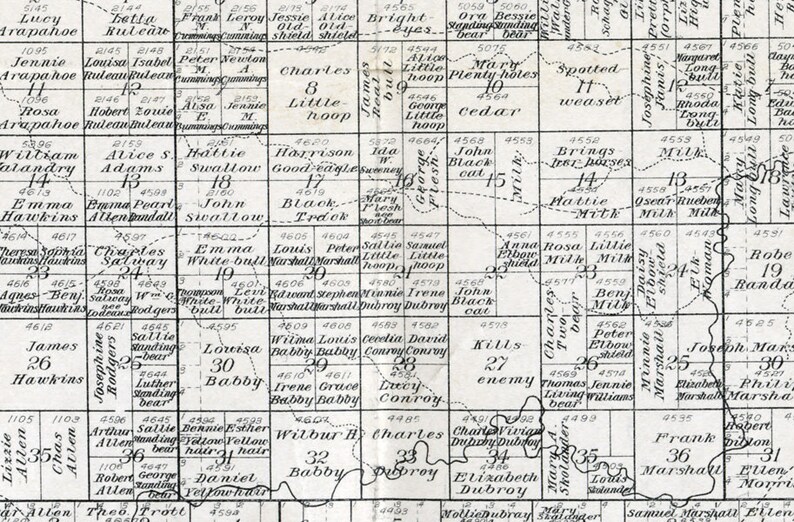 5145
Lucy
Arapahoe
Letta
Ruleau
2155
Frank
J
Cummings
2156
Leroy
N
Cummings
2173
Jessie
Old-
shield
2174
Alice
Old-
shield
4565
Bright-
eyes
5059
Ora
Standing
bear
5060
Bessie
Standing
bear
1095
Jennie
Arapahoe
11
1096
Rosa
Arapahoe
2145
Louisa
Ruleau
2148
Isabel
Ruleau
12
2146
Hobert
Ruleau
2147
Zouie
Ruleau
2151
Peter
M.
Cummings
2154
Newton
A
Cummings
Alisa
E.
Cummings
2153
Jennie
M.
Cummings
Charles
8
Little-
hoop
5172
James
Real
bull
4544
Alice
Little
hoop
9
4546
George
Little
hoop
5075
Mary
Plenty-holes
10
4564
Cedar
4589
Spotted
11
weasel
4551
Josephine
Janis
4567
Margaret
Long-
bull
4550
Rhoda
Long
bull
4566
Katie
Long bull
5296
William
Valandry
14
4613
Emma
Hawkins
2159
Alice S.
Adams
13
1102
Emma
Allen
4598
Pearl
Randall
2161
Hattie
Swallow
18
2160
John
Swallow
4620
Harrison
Good-eagle
17
4619
Black
Track
5172
Ida
W.
Sweeney
16
Mary
Flesh
nee
Shortbear
4664
George
Flesh
4568
John
Black
cat
15
4553
Milk
4552
Brings
her horses
14
4554
Hattie
Milk
4553
Milk
13
4558
Oscar
Milk
4557
Rueben
Milk
4549
Mary
Long bull
18
Lawrence
4614
Theresa
Hawkins
4617
Sophia
Hawkins
23
4616
Agnes
Hawkins
4615
Benj.
Hawkins
4597
Charles
Salway
24
4599
Rosa
Salway
nee
Lodeaux
4649
Wm
Rodgers
4600
Emma
White-bull
19
Thompson
White-
bull
4601
Levi
White-
bull
4605
Louis
Marshall
4604
Peter
Marshall
20
4606
Edward
Marshall
4603
Stephen
Marshall
4545
Sallie
Little
hoop
4547
Samuel
Little
hoop
21
4580
Minnie
Dubroy
4579
Irene
Dubroy
4561
Anna
Elbow
shield
22
4568
John
Black
cat
4555
Rosa
Milk
4556
Lillie
Milk
23
4577
Charles
Two
bear
4559
Benj
Milk
4560
Daisy
Elbow
shield
24
4543
Elk-
Woman
4531
Robe
19
Randa
4612
James
26
Hawkins
4621
Josephine
Rodgers
4645
Sallie
Standing-
bear
25
4644
Luther
Standing
bear
4595
Louisa
30
Babby
4609
Wilma
Babby
4608
Louis
Babby
29
4610
Irene
Babby
4611
Grace
Babby
4583
Cecelia
Conroy
4582
David
Conroy
28
4581
Lucy
Conroy
4578
Kills-
27
enemy
4562
Peter
Elbow
shield
26
4569
Thomas
Living
bear
4574
Jennie
Williams
Minnie
Marshall
4536
25
4528
Elizabeth
Marshall
4525
Joseph Mars
30
4527
Philip
Marshall
1105
Lizzie
Allen
35
1103
Chas
Allen
4596
Arthur
Allen
4645
Sallie
Standing-
bear
36
1106
Robert
Allen
4647
George
Standing
bear
4594
Bennie
Yellow
hair
4593
Esther
Yellow
hair
31
4591
Daniel
Yellow hair
4607
Wilbur H.
32
Babby
4485
Charles
33
Dubroy
4491
Charles
Dubroy
4492
Vivian
Dubroy
34
4486
Elizabeth
Dubroy
Mary A.
Skolander
4499
35
4503
Louis
Skolander
4535
Frank
36
Marshall
4540
Robert
Dixon
31
4530
Ellen
Morri
ar Allen
Thos
Trott
4584
4493
Mollie Dubray
Mary
Skolander
Samuel Marshall
Ellen